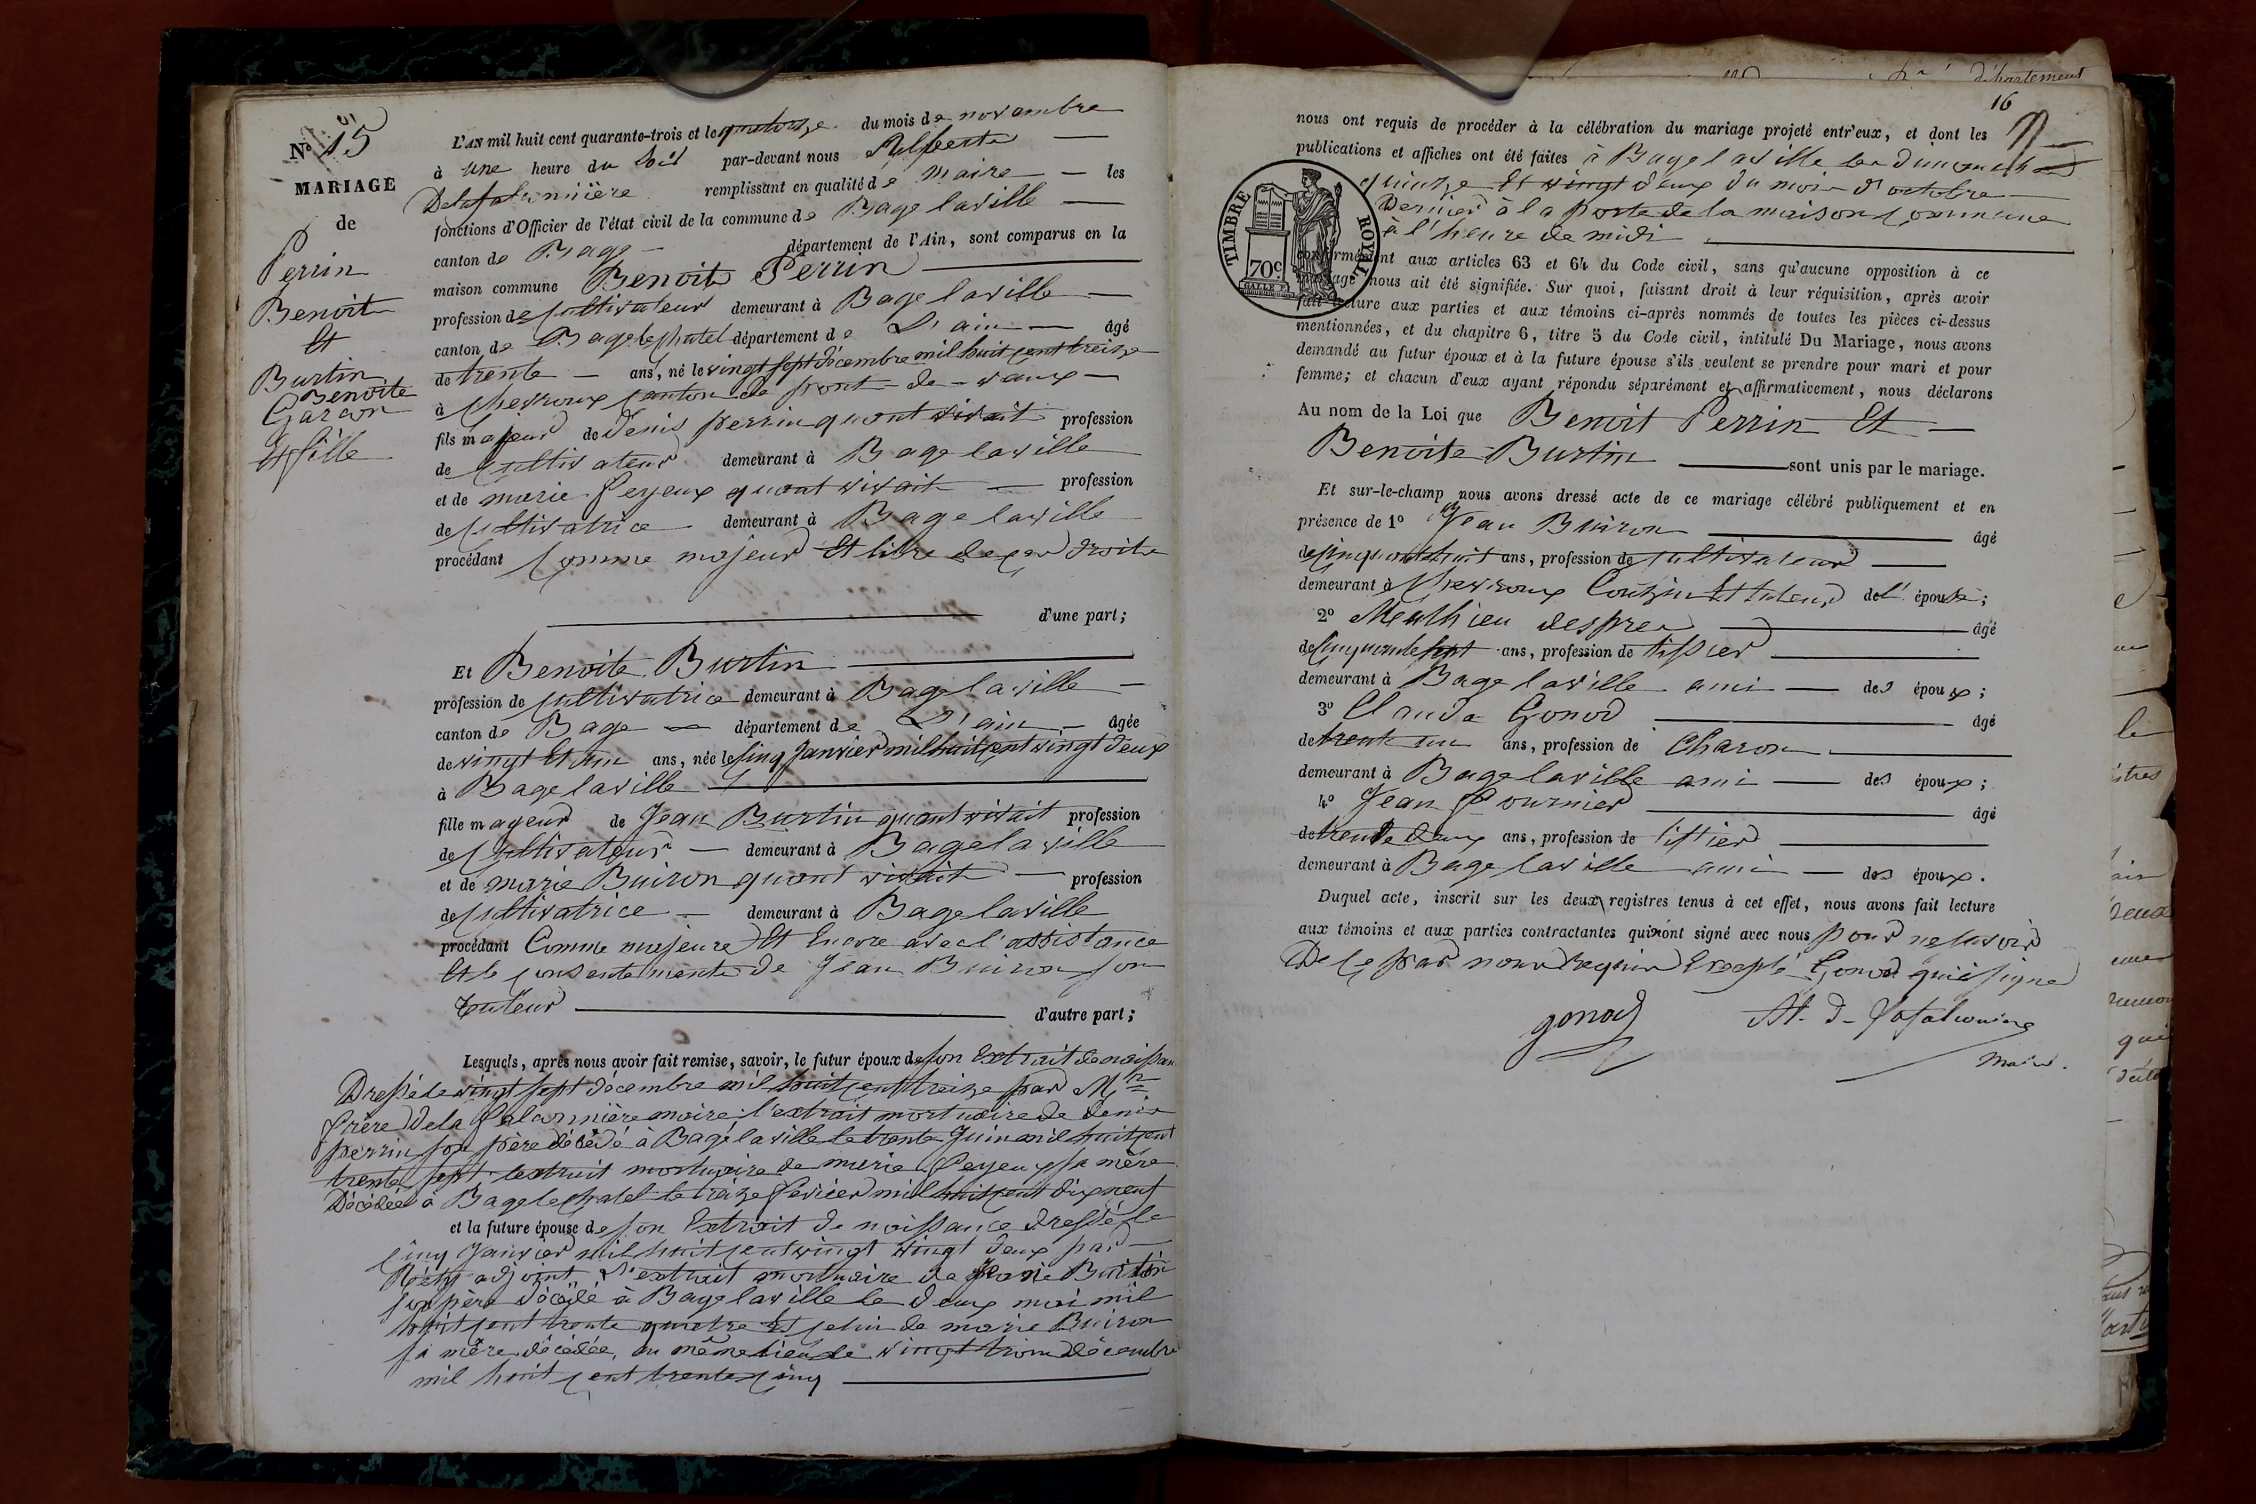 N° 15
MARIAGE
de
Perrin
Benoit
Et
Burtin
Benoite
Garcon
et fille
L'AN mil huit cent quarante-trois et le quatorze du mois de novembre
à une heure du soir par-devant nous
remplissant en qualité de maire les
fonctions d'Officier de l'état civil de la commune de Bage laville
canton de Bage département de l'Ain, sont comparus en la
maison commune Benoit Perrin
profession de cultivateur demeurant à Bage laville
canton de Bage le chatel département de L'ain âgé
de trente ans, né le vingt sept décembre mil huit cent treize
à chevroux canton de pont-de-vaux
fils majeur de denis perrin quant vivait profession
de cultivateur demeurant à Bage laville
et de marie Peyeux quant vivait profession
de cultivatrice demeurant à Bage laville
procédant comme majeur Et libre de ces droits
d'une part;
Et Benoite Burtin
profession de cultivatrice demeurant à Bage laville
canton de Bage département de L'ain âgée
de vingt Et un ans, née le cinq janvier mil huit cent vingt deux
à Bage laville
fille mayeur de Jean Burtin quant vivait profession
de cultivateur demeurant à Bage laville
et de marie Buiron quant vivait profession
de cultivatrice demeurant à Bage laville
procédant Comme majeure Et Encore avec l'assistance
Et le consentement de Jean Buiron son
tuteur d'autre part;
Lesquels, après nous avoir fait remise, savoir, le futur époux de son Extrait de naissan
Dressé le vingt sept décembre mil huit cent treize par Mr
frère de la maire l'extrait mortuaire de denis
perrin son père décédé à Bagé laville le trente Juin mil huit cent
trente sept l'extrait mortuaire de marie Peyeux sa mère
Décédée à Bage le chatel le treize fevrier mil huit cent dix neuf
et la future épouse de son Extrait de naissance dressé le
cinq Janvier mil huit cent vingt vingt deux par
adjoint L'extrait mortuaire de
son père décédé à Bage laville le deux mai mil
huit cent trente quatre Et celui de marie Buiron
sa mère décédée, au même lieu le vingt trois décembre
mil huit cent trente cinq
département
16
nous ont requis de procéder à la célébration du mariage projeté entr'eux, et dont les
publications et affiches ont été faites à Bage laville les dimanches
quinze Et vingt deux du mois d'octobre
Dernier à la porte de la maison commune
à l'heure de midi
TIMBRE ROYAL
70 c
conformément aux articles 63 et 64 du Code civil, sans qu'aucune opposition à ce
mariage nous ait été signifiée. Sur quoi, faisant droit à leur réquisition, après avoir
fait lecture aux parties et aux témoins ci-après nommés de toutes les pièces ci-dessus
mentionnées, et du chapitre 6, titre 5 du Code civil, intitulé Du Mariage, nous avons
demandé au futur époux et à la future épouse s'ils veulent se prendre pour mari et pour
femme; et chacun d'eux ayant répondu séparément et affirmativement, nous déclarons
Au nom de la Loi que Benoit Perrin Et
Benoite Burtin sont unis par le mariage.
Et sur-le-champ nous avons dressé acte de ce mariage célébré publiquement et en
présence de 1° Jean Buiron âgé
de cinquante huit ans, profession de cultivateur
demeurant à chevroux Cousin Et tuteur de l'épouse;
2° Mathieu despres âgé
de cinquante sept ans, profession de tissier
demeurant à Bage laville ami des époux;
3° Claude Gonod âgé
de trent un ans, profession de Charon
demeurant à Bage laville ami des époux;
4° Jean Fournier âgé
de trente deux ans, profession de tissier
demeurant à Bage laville ami des époux.
Duquel acte, inscrit sur les deux registres tenus à cet effet, nous avons fait lecture
aux témoins et aux parties contractantes qui n'ont signé avec nous pour ne savoir
De ce par nous Requis Excepté Gonod qui a signé
gonod
maire.